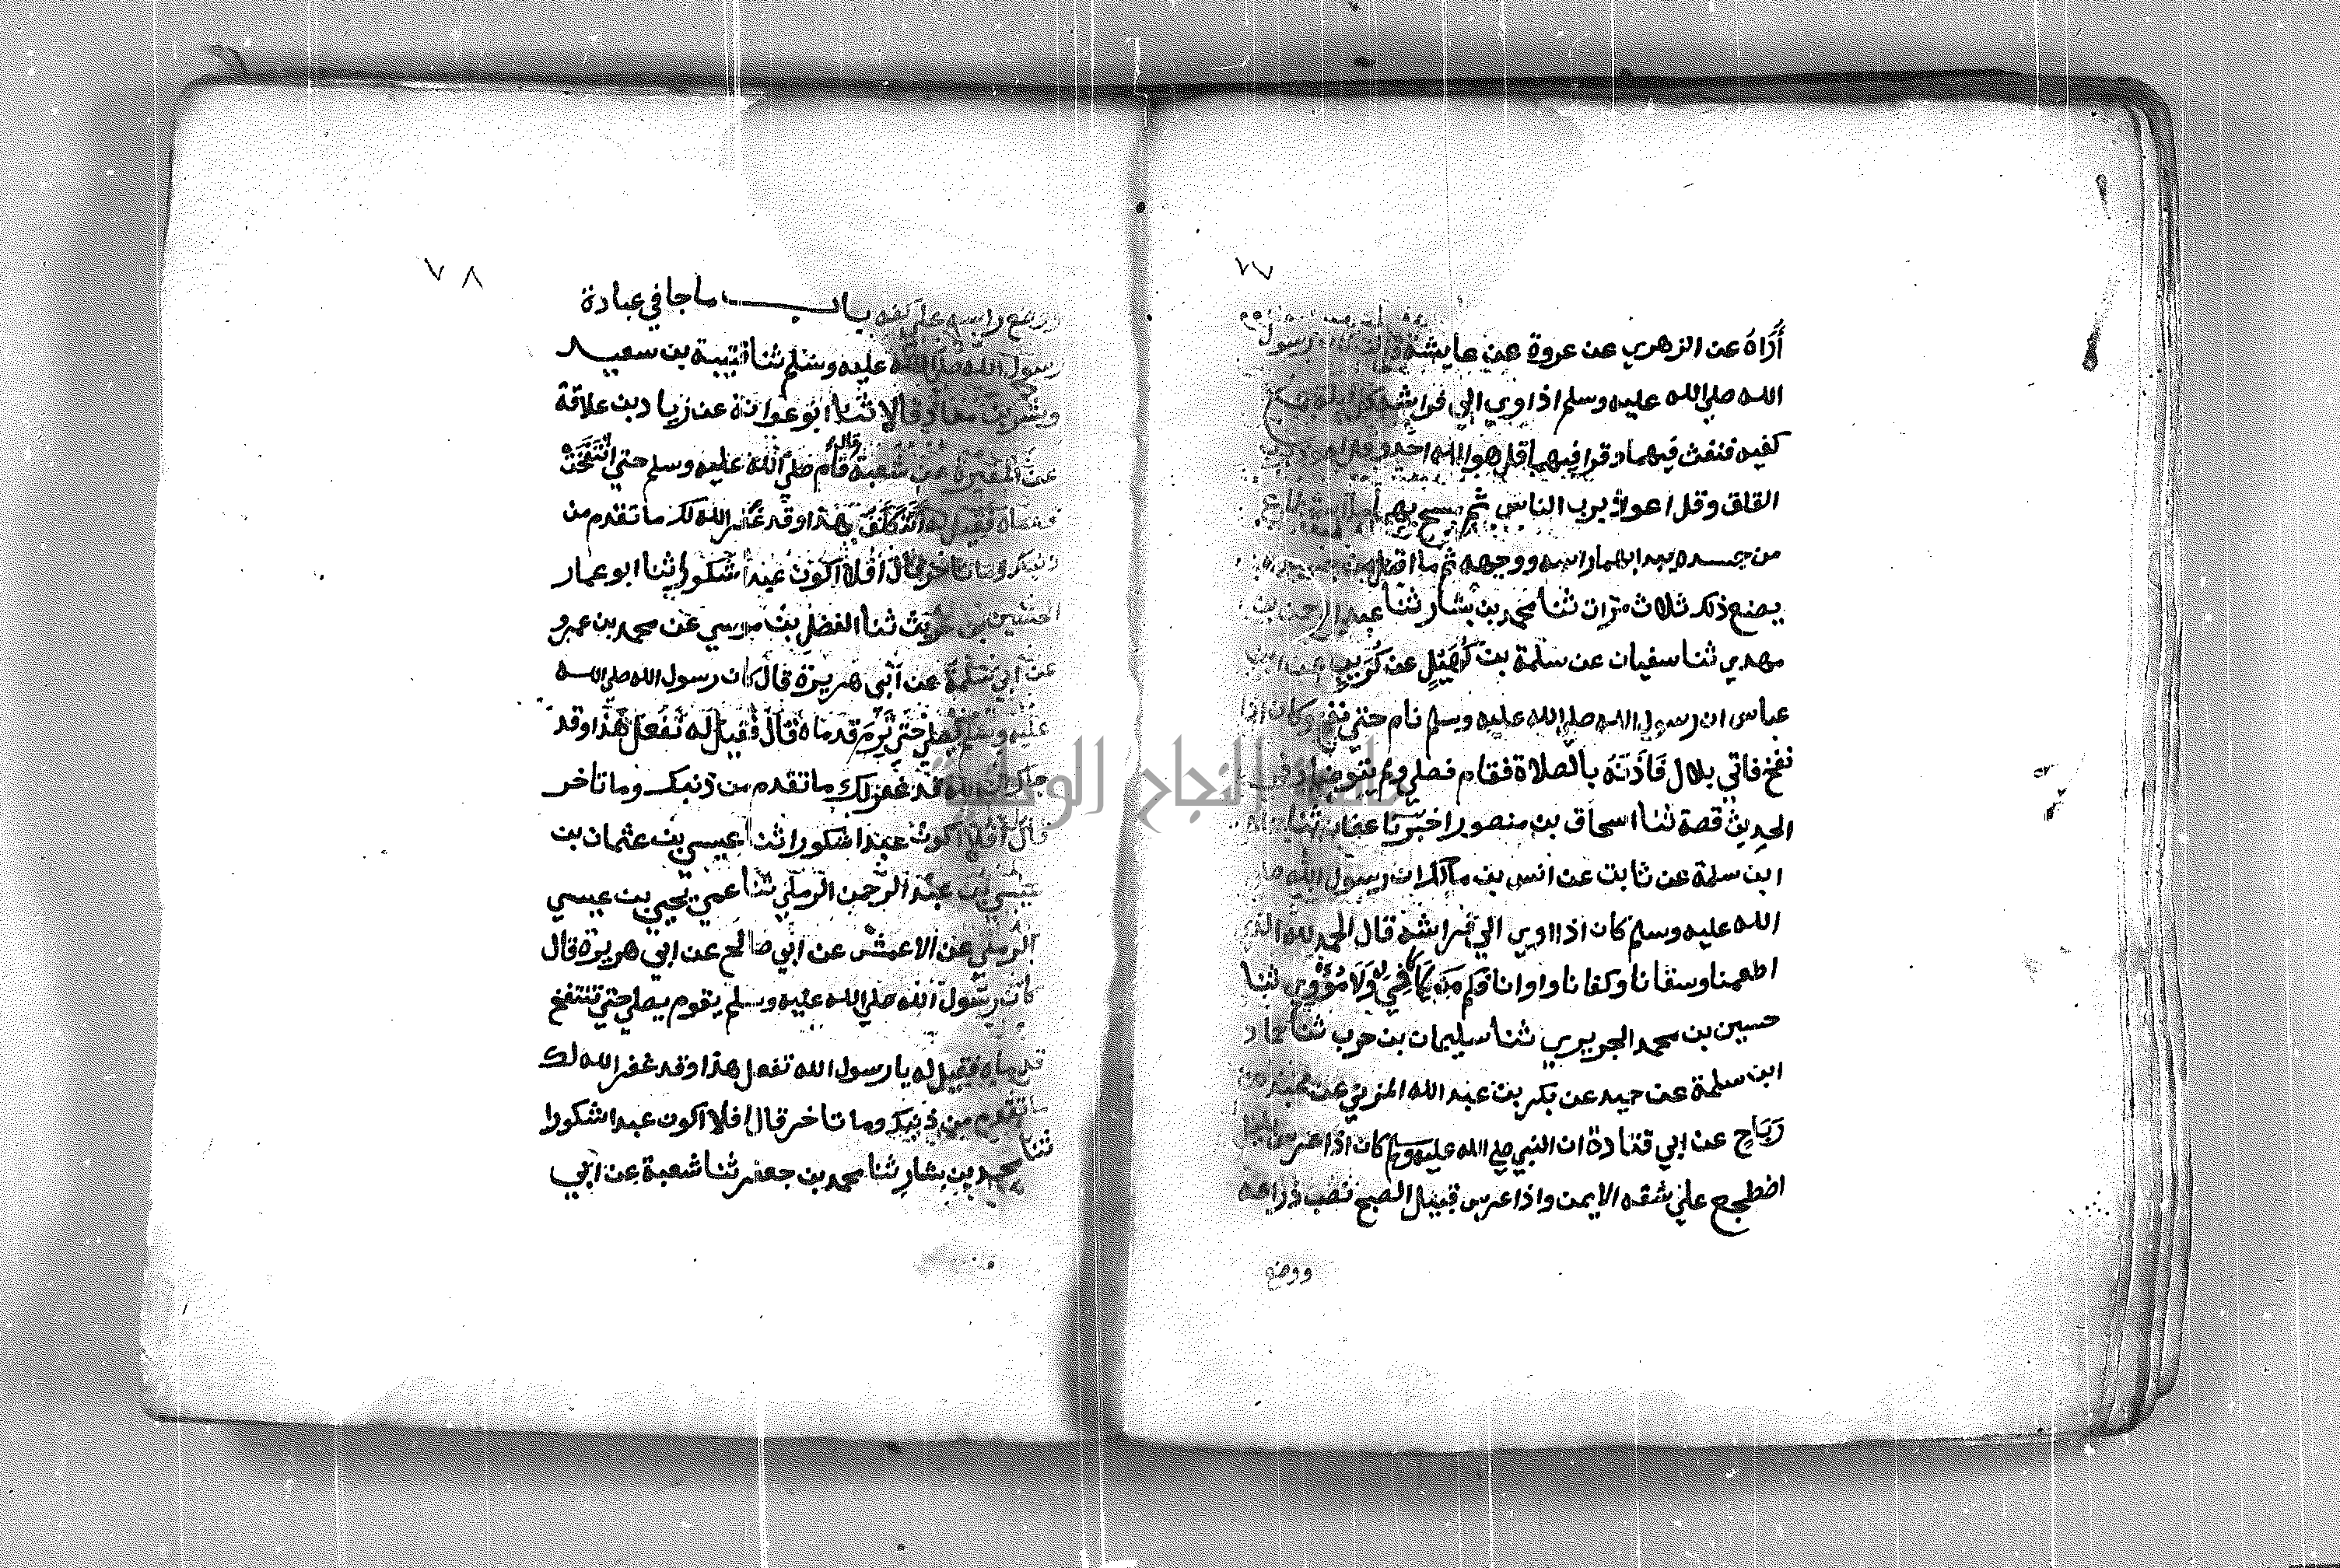 ٧٧
أُرَاهُ عن الزهري عن عروة عن عايشة قالت كان رسول
الله صلي الله عليه وسلم اذا اوي الي فراشه كل ليلة جمع
كفيه فنفث فيهما وقرا فيهما قل هو الله احد وقل اعوذ برب
الفلق وقل اعوذ برب الناس ثم مسح بهما ما استطاع
من جسده يبدا بهما راسه ووجهه ثم ما اقبل من جسده
يصنع ذلك ثلاث مرات ثنا محمد بن بشار ثنا عبد الرحمن بن
مهدي ثنا سفيان عن سلمة بن كُهَيْلٍ عن كُرَيْبٍ عن ابن
عباس ان رسول الله صلي الله عليه وسلم نام حتي نفخ وكان اذا
نفخ فاتي بلال فَاذَنَهُ بالصلاة فقام فصلي ولم يتوضا وفي
الحديث قصة ثنا اسحاق بن منصور اخبرنا عفان ثنا حماد
ابن سلمة عن ثابت عن انس بن مالك ان رسول الله صلي
الله عليه وسلم كان اذا اوي الي فراشه قال الحمد لله الذي
اطعمنا وسقانا وكفانا واوانا فكم مَن لا كَافِيَ له وَلَا مُؤْوِيَ ثنا
حسين بن محمد الجريري ثنا سليمان بن حرب ثنا حماد
ابن سلمة عن حميد عن بكر بن عبد الله المزني عن عبد الله بن
رَبَاحٍ عن ابي قتادة ان النبي صلي الله عليه وسلم كان اذا عرس بليل
اضطجع علي شقه الايمن واذا عرس قبيل الصبح نصب ذراعه
ووضع
٧٨
ووضع راسه علي كفه باب ما جا في عبادة
رسول الله صلي الله عليه وسلم ثنا قتيبة بن سعيد
وبشر بن معاذ قالا ثنا ابو عوانة عن زياد بن علاقة
عن المغيرة بن شعبة قال قام صلي الله عليه وسلم حتي انْتَفَخَتْ
قدماه فقيل له أَتَتَكَلَّفُ هذا وقد غفر الله لك ما تقدم من
ذنبك وما تاخر قال افلا اكون عبدا شكورا ثنا ابو عمار
الحسين بن حريث ثنا الفضل بن موسي عن محمد بن عمرو
عن ابي سلمة عن ابي هريرة قال كان رسول الله صلي الله
عليه وسلم يصلي حتي تَرِمَ قدماه قال فقيل له تفعل هذا وقد
جاك ان الله قد غفر لك ما تقدم من ذنبك وما تاخر
قال افلا اكون عبدا شكورا ثنا عيسي بن عثمان بن
عيسي بن عبد الرحمن الرملي ثنا عمي يحيي بن عيسي
الرملي عن الاعمش عن ابي صالح عن ابي هريرة قال
كان رسول الله صلي الله عليه وسلم يقوم يصلي حتي تنتفخ
قدماه فقيل له يا رسول الله تفعل هذا وقد غفر الله لك
ما تقدم من ذنبك وما تاخر قال افلا اكون عبدا شكورا
ثنا محمد بن بشار ثنا محمد بن جعفر ثنا شعبة عن ابي